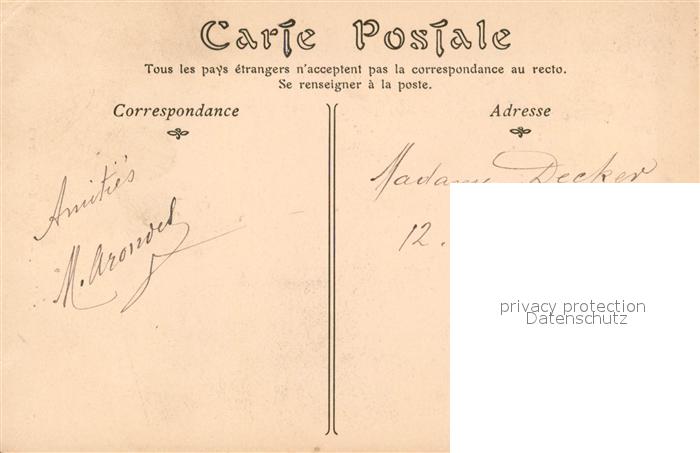 Carte Postale
Tous les pays étrangers n'acceptent pas la correspondance au recto.
Se renseigner à la poste.
Correspondance
Adresse
Amitiés
M. Arondel
Madame Decker
12.
privacy protection
Datenschutz